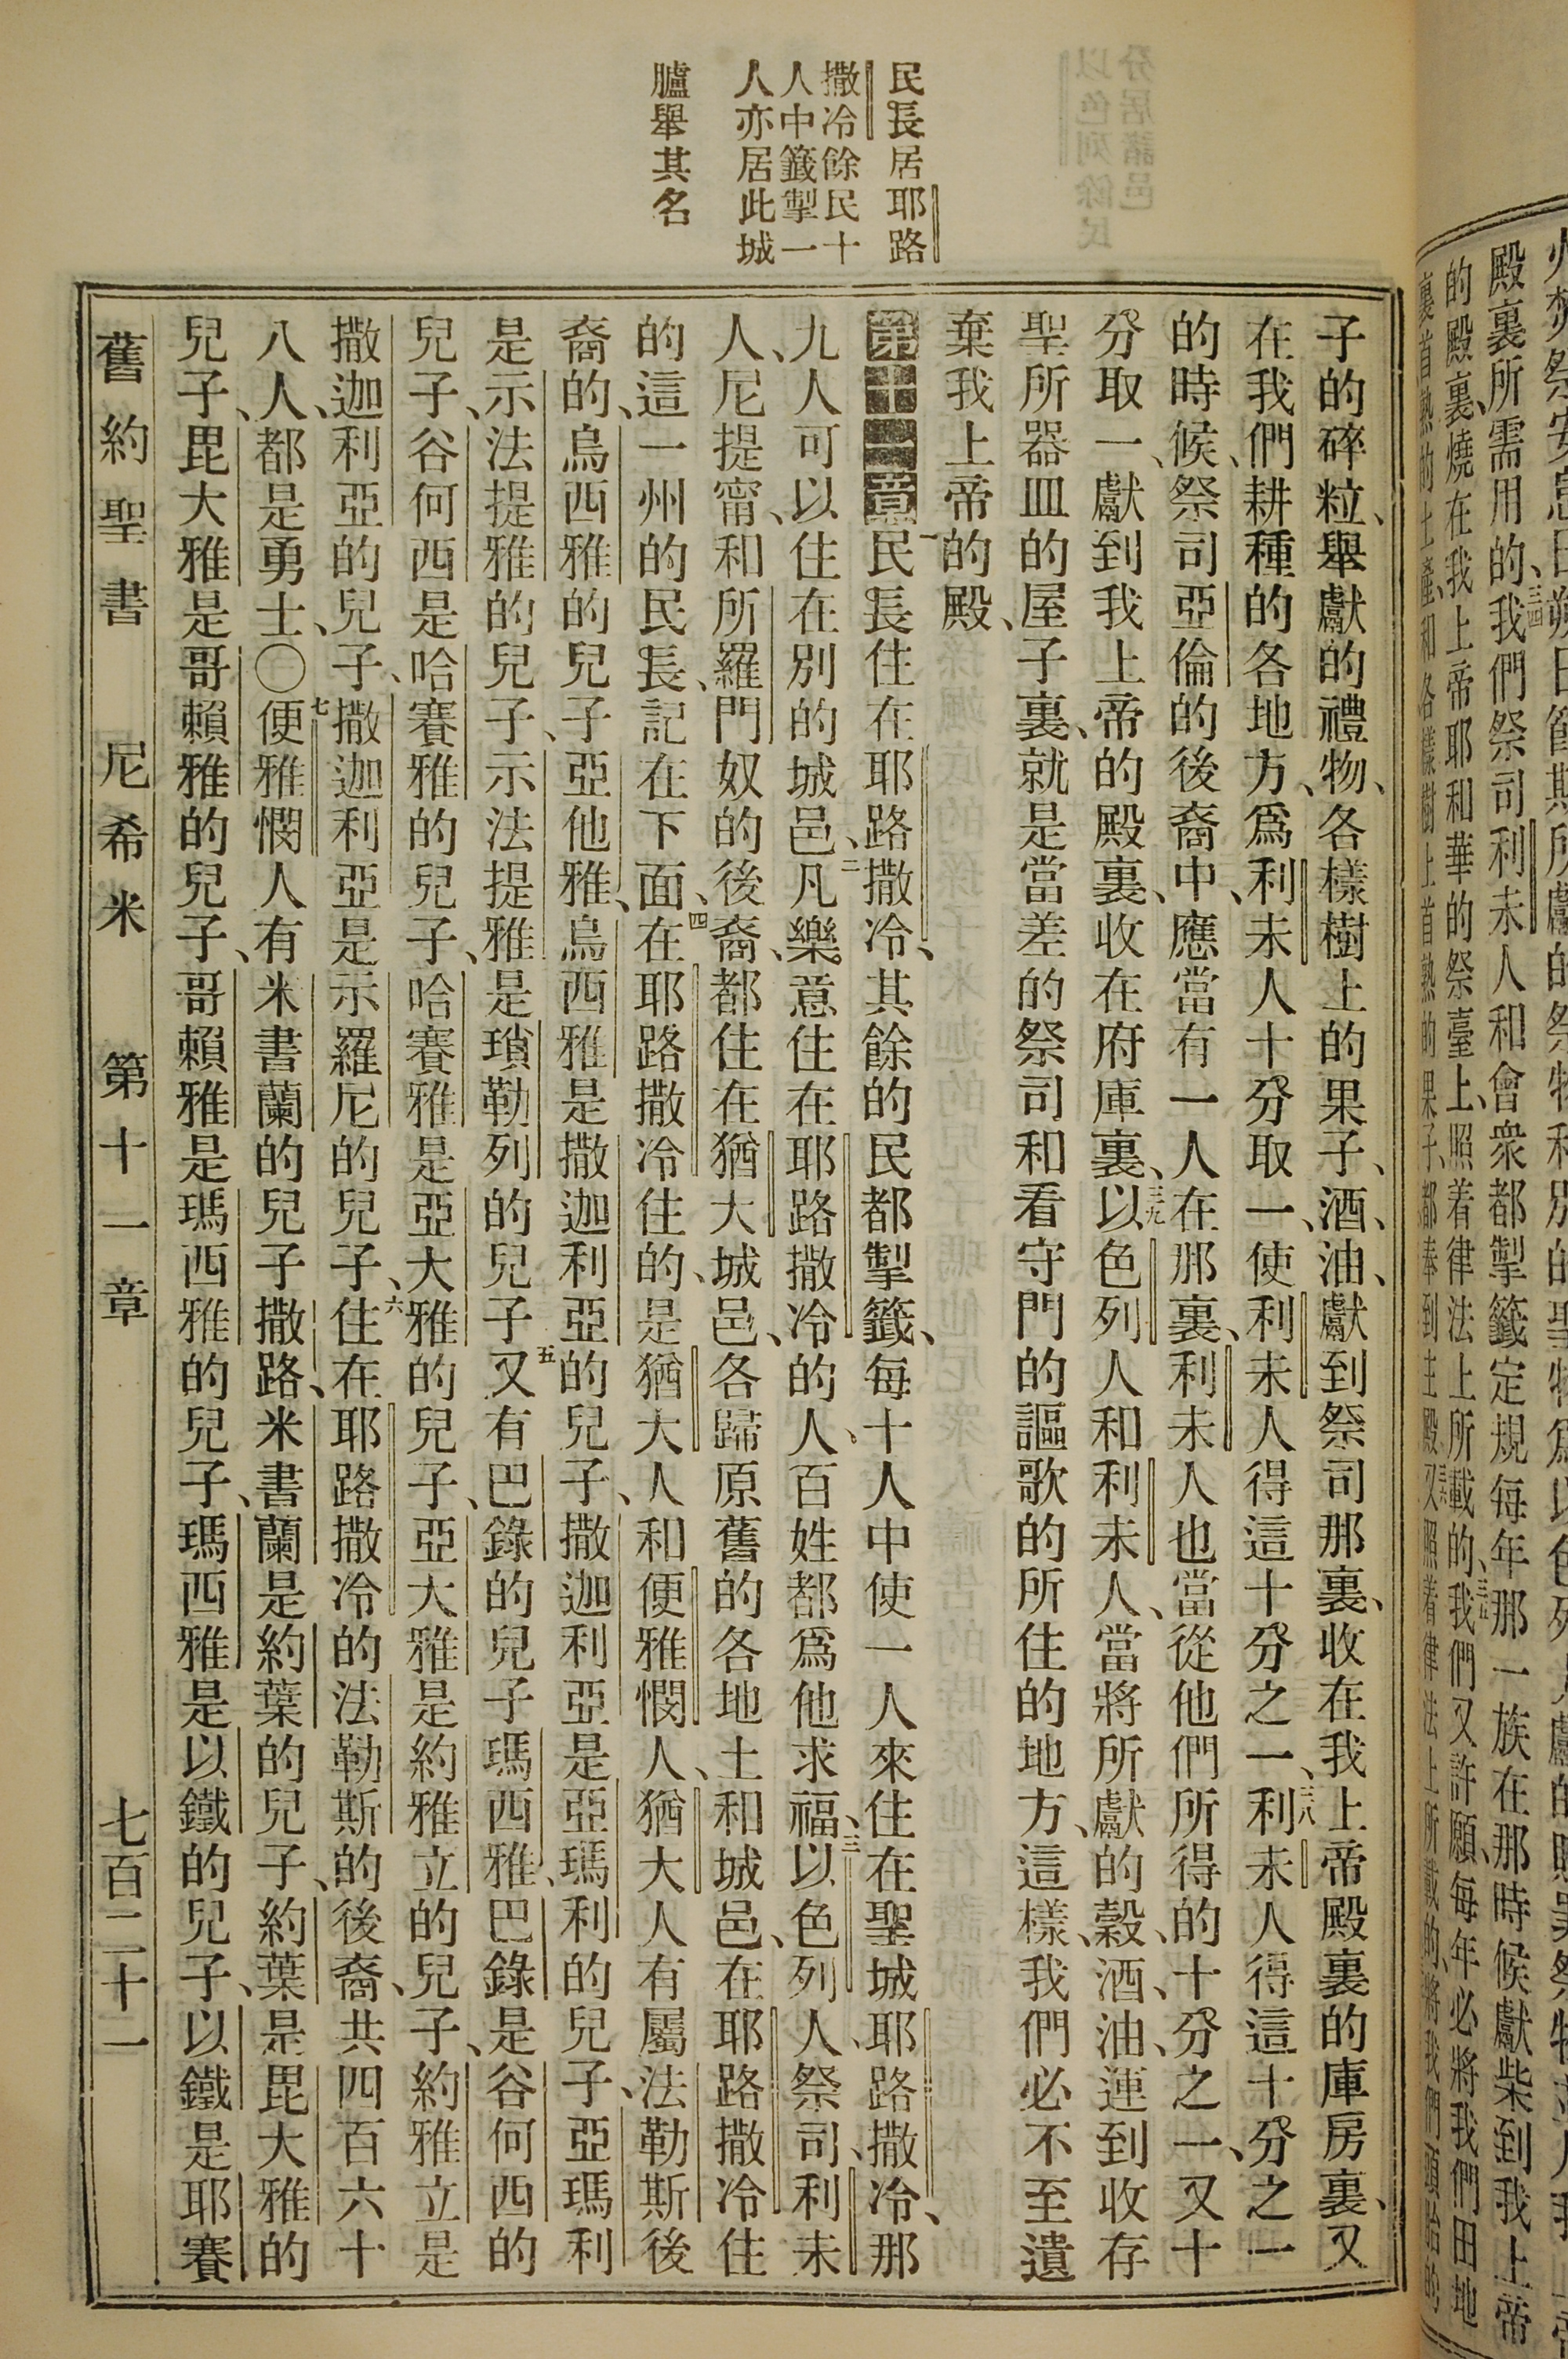 民長居耶路
撒冷餘民十
人中籤掣一
人亦居此城
臚舉其名
子的碎粒、舉獻的禮物、各樣樹上的果子、酒、油、獻到祭司那裏、收在我上帝殿裏的庫房裏、又
在我們耕種的各地方、爲利未人十分取一、使利未人得這十分之一、三八利未人得這十分之一
的時候、祭司亞倫的後裔中、應當有一人在那裏、利未人也當從他們所得的十分之一、又十
分取一、獻到我上帝的殿裏、收在府庫裏、三九以色列人和利未人、當將所獻的穀、酒、油、運到收存
聖所器皿的屋子裏、就是當差的祭司和看守門的謳歌的所住的地方、這樣、我們必不至遺
棄我上帝的殿、
第十一章一民長住在耶路撒冷、其餘的民都掣籤、每十人中使一人來住在聖城耶路撒冷、那
九人可以住在別的城邑、二凡樂意住在耶路撒冷的人、百姓都爲他求福、三以色列人、祭司、利未
人、尼提甯、和所羅門奴的後裔、都住在猶大城邑、各歸原舊的各地土和城邑、在耶路撒冷住
的這一州的民長、記在下面、四在耶路撒冷住的、是猶大人和便雅憫人、猶大人有屬法勒斯後
裔的、烏西雅的兒子、亞他雅、烏西雅是撒迦利亞的兒子、撒迦利亞是亞瑪利的兒子、亞瑪利
是示法提雅的兒子、示法提雅是瑣勒列的兒子五又有巴錄的兒子瑪西雅、巴錄是谷何西的
兒子、谷何西是哈賽雅的兒子、哈賽雅是亞大雅的兒子、亞大雅是約雅立的兒子、約雅立是
撒迦利亞的兒子、撒迦利亞是示羅尼的兒子、六住在耶路撒冷的法勒斯的後裔、共四百六十
八人、都是勇士、〇七便雅憫人有米書蘭的兒子撒路、米書蘭是約葉的兒子、約葉是毘大雅的
兒子、毘大雅是哥賴雅的兒子、哥賴雅是瑪西雅的兒子、瑪西雅是以鐵的兒子、以鐵是耶賽
舊約聖書 尼希米 第十一章 七百二十一
殿裏所需用的、三四我們祭司利未人和會衆都掣籤定規每年那一族在那時候獻柴到我上帝
的殿裏、燒在我上帝耶和華的祭臺上、照着律法上所載的、三五我們又許願、每年必將我們田地